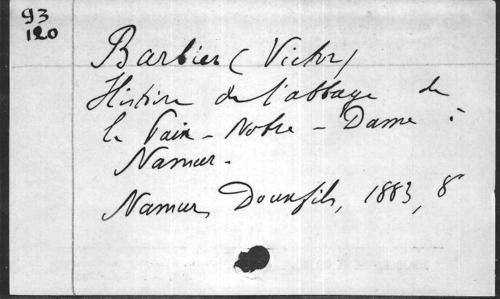 93
120
Barbier (Victor)
Histoire de l'abbaye de
la Paix-Notre-Dame à
Namur.
Namur, Douxfils, 1883, 8°